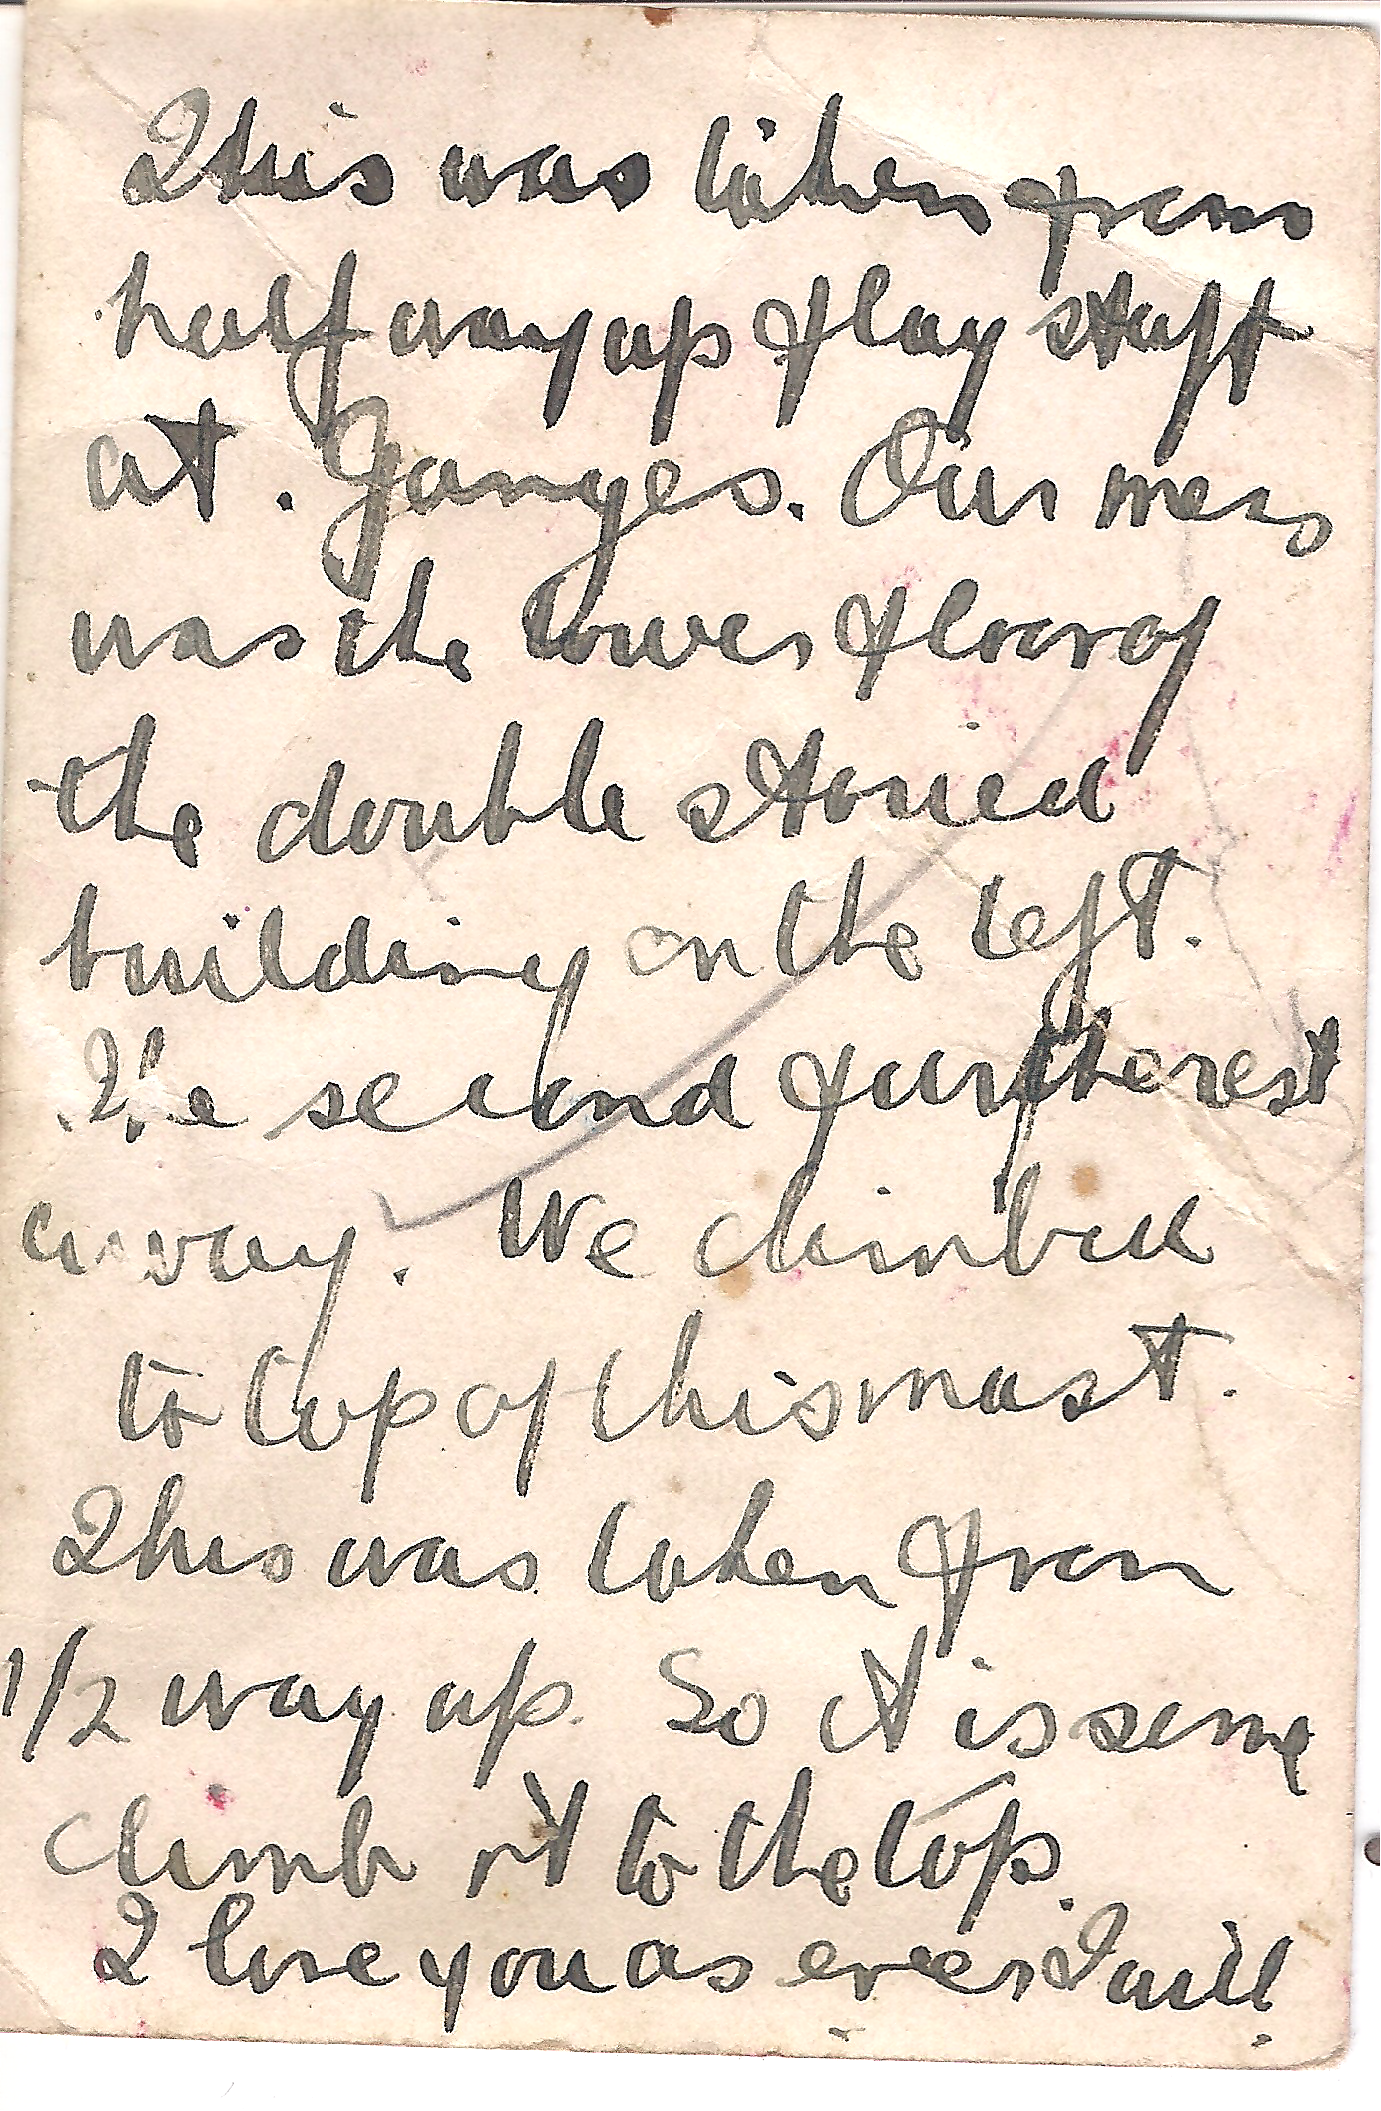 This was taken from
half way up flag staff
at. Ganges. Our mess
was the lower floor of
the double storied
building on the left.
The second furtherest
away. We climbed
to top of this mast.
This was taken from
1/2 way up. So it is some
climb it to the top.
I love you as ever I will.